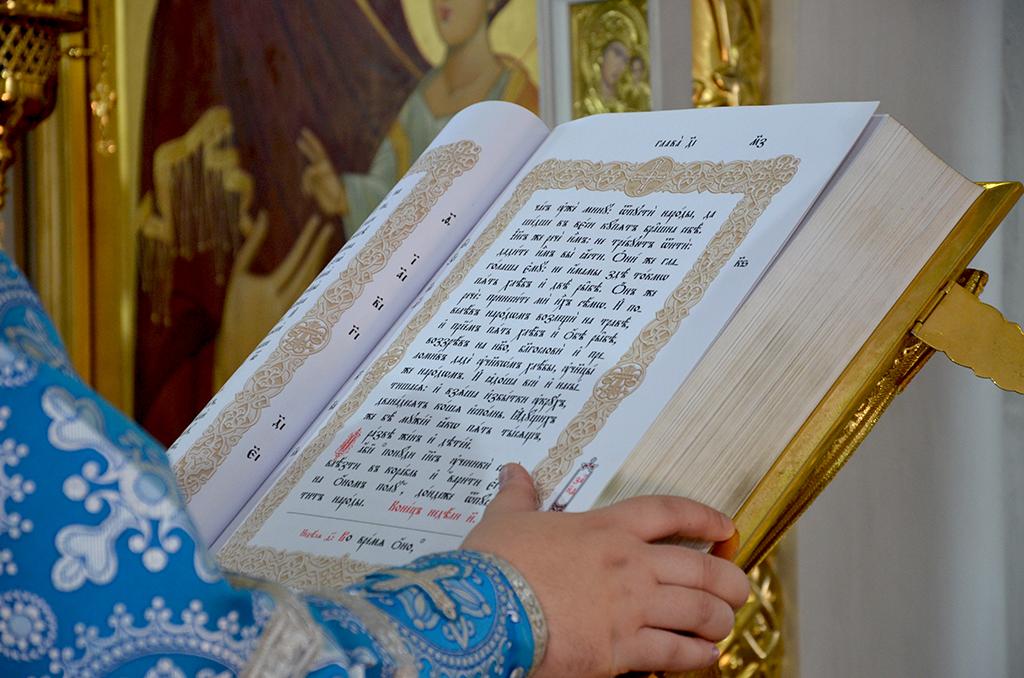 а҃.
і҃
а҃і
в҃і
г҃і
д҃і
є҃і
глава̀ д҃і м҃з
ча́съ ᲂу҆жѐ минꙋ̀: ѿпꙋстѝ наро́ды, да
ше́дше въ вє́си кꙋ́пѧтъ бра̑шна себѣ̀.
І҆и҃съ же речѐ и҆̀мъ: не тре́бꙋютъ ѿитѝ:
дади́те и҆̀мъ вы̀ ꙗ҆́сти. Ѻ҆ни́ же гла-
го́лаша є҆мꙋ̀: не и҆́мамы здѣ̀ то́кмѡ
пѧ́ть хлѣ̑бъ и҆ двѣ̀ ры̑бѣ. Ѻ҆́нъ же
речѐ: принеси́те мѝ и҆̀хъ сѣ́мѡ. И҆ по-
велѣ́въ наро́дѡмъ возлещѝ на травѣ̀,
и҆ прїе́мъ пѧ́ть хлѣ̑бъ и҆ ѻ҆́бѣ ры̑бѣ,
воззрѣ́въ на нб҃о, блгⷭ҇овѝ и҆ пре-
ло́мивъ дадѐ ᲂу҆чн҃кѡ́мъ хлѣ́бы, ᲂу҆чн҃цы́
же наро́дѡмъ. И҆ ꙗ҆до́ша всѝ и҆ насы́-
тишасѧ: и҆ взѧ́ша и҆збы́тки ᲂу҆крꙋ̑хъ,
двана́десѧть кѡ́ша и҆спо́лнь. Ꙗ҆дꙋ́щихъ
же бѣ̀ мꙋже́й ꙗ҆́кѡ пѧ́ть ты́сѧщъ,
ра́звѣ же́нъ и҆ дѣте́й.
И҆ а҆́бїе понꙋ́ди І҆и҃съ ᲂу҆чн҃кѝ
влѣ́сти въ кора́бль и҆ вари́ти є҆го̀
на ѻ҆́номъ полꙋ̀, до́ндеже ѿпꙋ́-
ститъ наро́ды. Коне́цъ недѣ́ли и҃.
Недѣ́лѧ Во вре́мѧ ѻ҆́но,